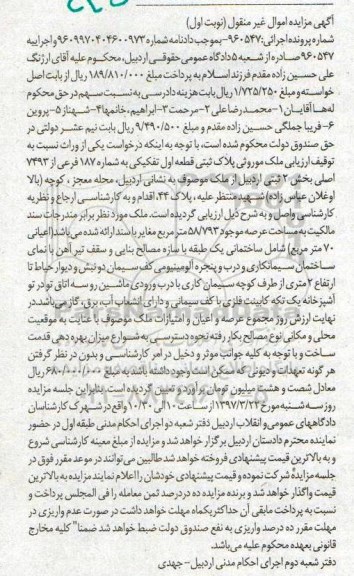 آگهی مزایده اموال غیر منقول (نوبت اول)
شماره پرونده اجرائی: ۹۶۰۵۴۷- بموجب دادنامه شماره ۹۶۰۹۹۷۰۴۰۴۶۰۰۹۷۳ واجراییه
۹۶۰۵۴۷ صادره از شعبه ۵ دادگاه عمومی حقوقی اردبیل، محکوم علیه آقای ارژنگ
علی حسین زاده مقدم فرزند اسلام به پرداخت مبلغ ۱۸۹/۸۱۰/۰۰۰ ریال از بابت اصل
خواسته و مبلغ ۱/۷۲۵/۲۵۰ ریال بابت هزینه دادرسی به نسبت سهم در حق محکوم
له ها آقایان ۱- محمدرضا علی ۲- مرحمت ۳- ابراهیم، خانمها ۴- شهناز ۵- پروین
۶- فریبا جملگی حسین زاده مقدم و مبلغ ۹/۴۹۰/۵۰۰ ریال بابت نیم عشر دولتی در
حق صندوق دولت محکوم شده است، با توجه به اینکه درخواست یکی از وراث نسبت به
توقیف ارزیابی ملک موروثی پلاک ثبتی قطعه اول تفکیکی به شماره ۱۸۷ فرعی از ۷۴۹۳
اصلی بخش ۲ ثبتی اردبیل از ملک موصوف به نشانی اردبیل، محله معجز، کوچه (بالا
اوغلان عباس زاده) شهید منتظر علیه، پلاک ۴۴، اقدام و به کارشناسی ارجاع و نظریه
کارشناسی واصل و به شرح ذیل ارزیابی گردیده است. ملک مورد نظر برابر مندرجات سند
مالکیت به مساحت عرصه موجود ۵۸/۷۹۳ متر مربع مغایر با سند ارائه شده می باشد (اعیانی
۷۰ متر مربع) شامل ساختمانی یک طبقه با سازه مصالح بنایی و سقف تیر آهن با نمای
ساختمان سیمانکاری و درب و پنجره آلومینیومی کف سیمان دونبش و دیوار حیاط تا
ارتفاع ۲ متری از طرف کوچه سیمان کاری با درب ورودی ماشین رو سه اتاق تو در تو
آشپزخانه یک تکه کابینت فلزی با کف سیمانی و دارای انشعاب آب، برق، گاز می باشد در
نهایت ارزش روز مجموع عرصه و اعیان و امتیازات ملک موصوف با عنایت به موقعیت
محلی و مکانی نوع مصالح بکار رفته نحوه دسترسی به شوارع میزان بهره دهی قدمت
ساخت و با توجه به کلیه جوانب موثر و دخیل در امر کارشناسی و بدون در نظر گرفتن
هر گونه تعهدات و دیونی که ممکن است وجود داشته باشد به مبلغ ۶۸۰/۰۰۰/۰۰۰ ریال
معادل شصت و هشت میلیون تومان برآورد و تعیین گردیده است. بنابراین جلسه مزایده
روز سه شنبه مورخ ۱۳۹۷/۳/۲۲ از ساعت ۱۰ الی ۱۰/۳۰ واقع در شهرک کارشناسان
دادگاههای عمومی و انقلاب اردبیل دفتر شعبه دو اجرای احکام مدنی طبقه اول در حضور
نماینده محترم دادستان اردبیل برگزار خواهد شد و مزایده از مبلغ معینه کارشناسی شروع
و به بالاترین قیمت پیشنهادی فروخته خواهد شد طالبین می توانند در موعد مقرر فوق در
جلسه مزایده شرکت نموده و قیمت پیشنهادی خودشان را اعلام نمایند مزایده به بالاترین
قیمت واگذار خواهد شد و برنده مزایده ده درصد ثمن معامله را فی المجلس پرداخت و
نسبت به پرداخت مابقی آن حداکثر یکماه مهلت خواهد داشت در صورت عدم واریزی در
مهلت مقرر ده درصد واریزی به نفع صندوق دولت ضبط خواهد شد ضمنا" کلیه مخارج
قانونی بعهده محکوم علیه می باشد.
دفتر شعبه دوم اجرای احکام مدنی اردبیل - جهدی